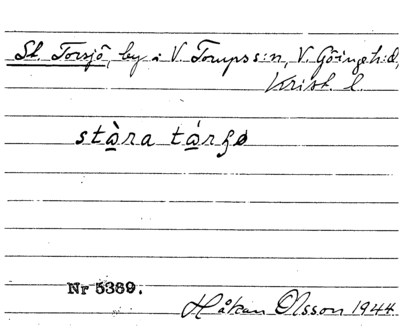 St. Torsjö, by i V. Torups s:n, V. Göinge h:d,
Krist. l.
stàra tárʂø
Nr 5369.
Håkan Olsson 1944